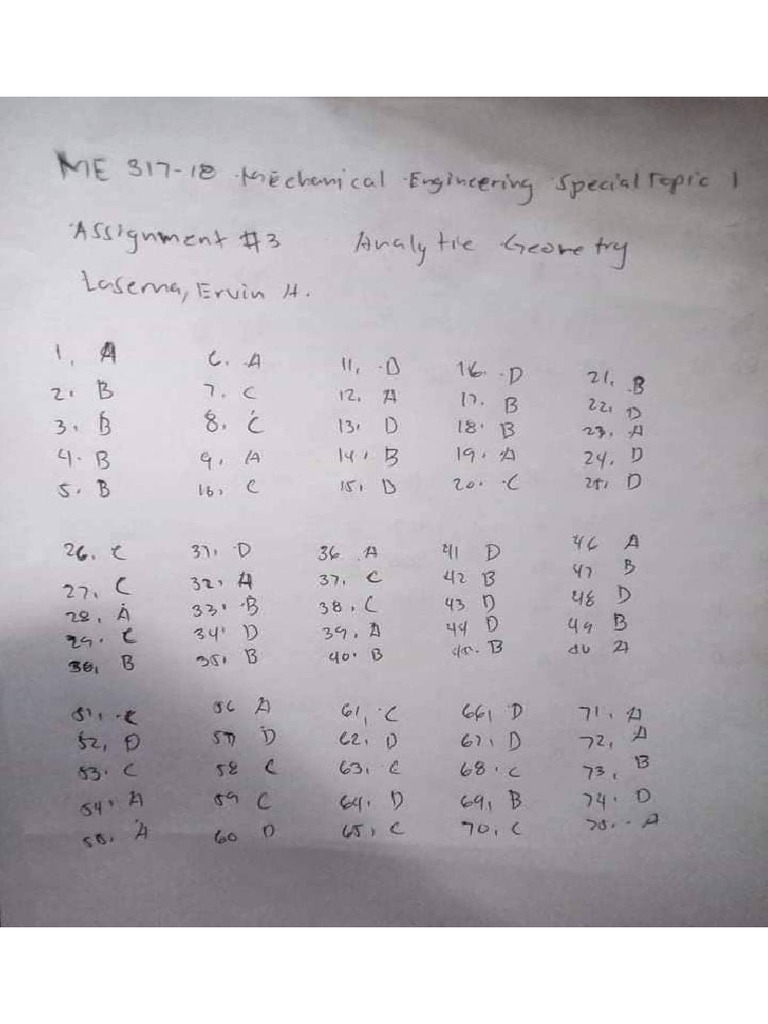 ME 317-18 Mechanical Engineering Special Topic 1
Assignment #3 Analytic Geometry
Laserna, Ervin H.
1. A 6. A 11. D 16. D 21. B
2. B 7. C 12. A 17. B 22. D
3. B 8. C 13. D 18. B 23. A
4. B 9. A 14. B 19. A 24. D
5. B 10. C 15. D 20. C 25. D
26. C 31. D 36 A 41 D 46 A
27. C 32. A 37. C 42 B 47 B
28. A 33. B 38. C 43 D 48 D
29. C 34. D 39. A 44 D 49 B
30. B 35. B 40. B 45. B 50 A
51. C 56 A 61. C 66. D 71. A
52. D 57 D 62. D 67. D 72. A
53. C 58 C 63. C 68. C 73. B
54. A 59 C 64. D 69. B 74. D
55. A 60 D 65. C 70. C 75. A